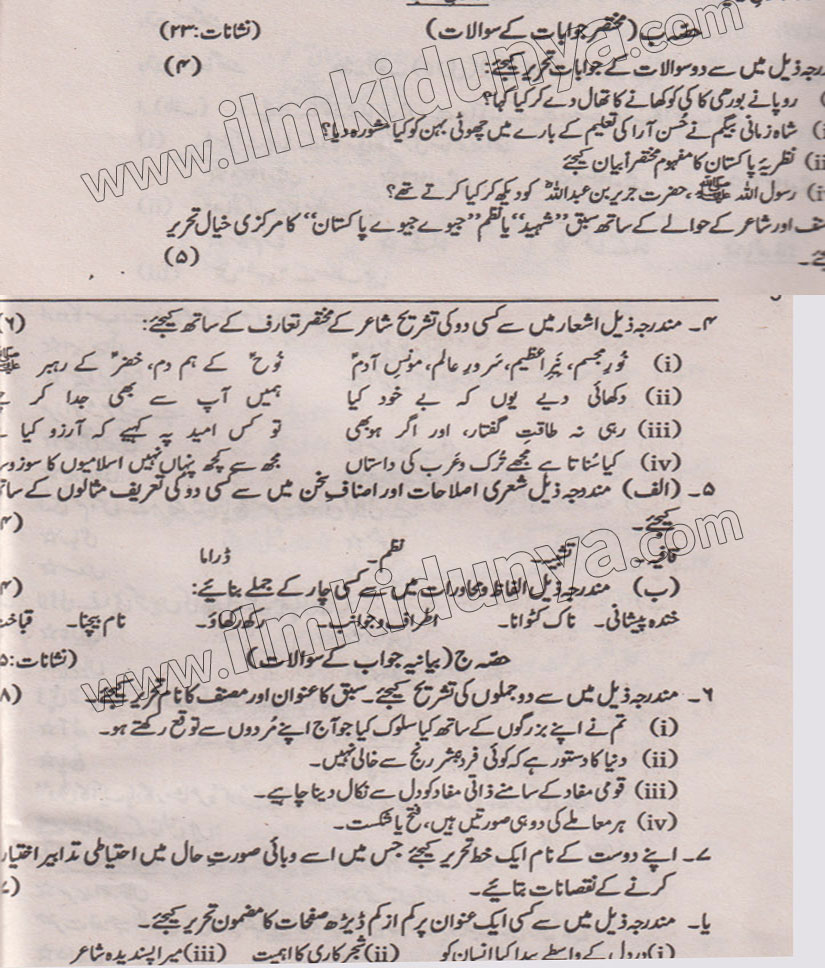 حصّہ ب (مختصر جوابات کے سوالات) (نشانات: ۲۳)
درجہ ذیل میں سے دو سوالات کے جوابات تحریر کیجئے: (۴)
روپا نے بوڑھی کاکی کو کھانے کا تھال دے کر کیا کہا؟
شاہ زمانی بیگم نے حُسن آرا کی تعلیم کے بارے میں چھوٹی بہن کو کیا مشورہ دیا؟
نظریۂ پاکستان کا مفہوم مختصراً بیان کیجئے
رسول اللہ ﷺ، حضرت جریر بن عبداللہؓ کو دیکھ کر کیا کرتے تھے؟
اور شاعر کے حوالے کے ساتھ سبق "شہید" یا نظم "جیوے جیوے پاکستان" کا مرکزی خیال تحریر
(۵)
۴۔ مندرجہ ذیل اشعار میں سے کسی دو کی تشریح شاعر کے مختصر تعارف کے ساتھ کیجئے: (۶)
(i) نُورِ مجسم، نَیّرِ اعظیم، سَرورِ عالم، مونسِ آدمؑ نُوحؑ کے ہم دم، خضرؑ کے رہبر ﷺ
(ii) دکھائی دیے یوں کہ بے خود کیا ہمیں آپ سے بھی جدا کر
(iii) رہی نہ طاقتِ گفتار، اور اگر ہو بھی تو کس امید پہ کہیے کہ آرزو کیا
(iv) کیا سُناتا ہے مجھے تُرک و عَرب کی داستاں مجھ سے کچھ پنہاں نہیں اسلامیوں کا سوز و
۵۔ (الف) مندرجہ ذیل شعری اصلاحات اور اصنافِ سخن میں سے کسی دو کی تعریف مثالوں کے ساتھ
کیجئے۔ (۴)
قافیہ۔ تشبیہ۔ نظم۔ ڈراما
(ب) مندرجہ ذیل الفاظ و محاورات میں سے کسی چار کے جملے بنائیے: (۴)
خندہ پیشانی۔ ناک کٹوانا۔ اطراف و جوانب۔ رکھ رکھاؤ۔ نام بیچنا۔ قباحت
حصّہ ج (بیانیہ جواب کے سوالات) (نشانات:
۶۔ مندرجہ ذیل میں سے دو جملوں کی تشریح کیجئے۔ سبق کا عنوان اور مصنف کا نام تحریر کیجئے۔ (۸)
(i) تم نے اپنے بزرگوں کے ساتھ کیا سلوک کیا جو آج اپنے مُردوں سے توقع رکھتے ہو۔
(ii) دنیا کا دستور ہے کہ کوئی فردِ بشر رنج سے خالی نہیں۔
(iii) قومی مفاد کے سامنے ذاتی مفاد کو دل سے نکال دینا چاہیے۔
(iv) ہر معاملے کی دو ہی صورتیں ہیں، فتح یا شکست۔
۷۔ اپنے دوست کے نام ایک خط تحریر کیجئے جس میں اسے وبائی صورتِ حال میں احتیاطی تدابیر اختیار
کرنے کے نقصانات بتائیے۔
یا۔ مندرجہ ذیل میں سے کسی ایک عنوان پر کم از کم ڈیڑھ صفحات کا مضمون تحریر کیجئے۔
(i) دردِ دل کے واسطے پیدا کیا انسان کو (ii) شجر کاری کا اہمیت (iii) میرا پسندیدہ شاعر
www.ilmkidunya.com
www.ilmkidunya.com